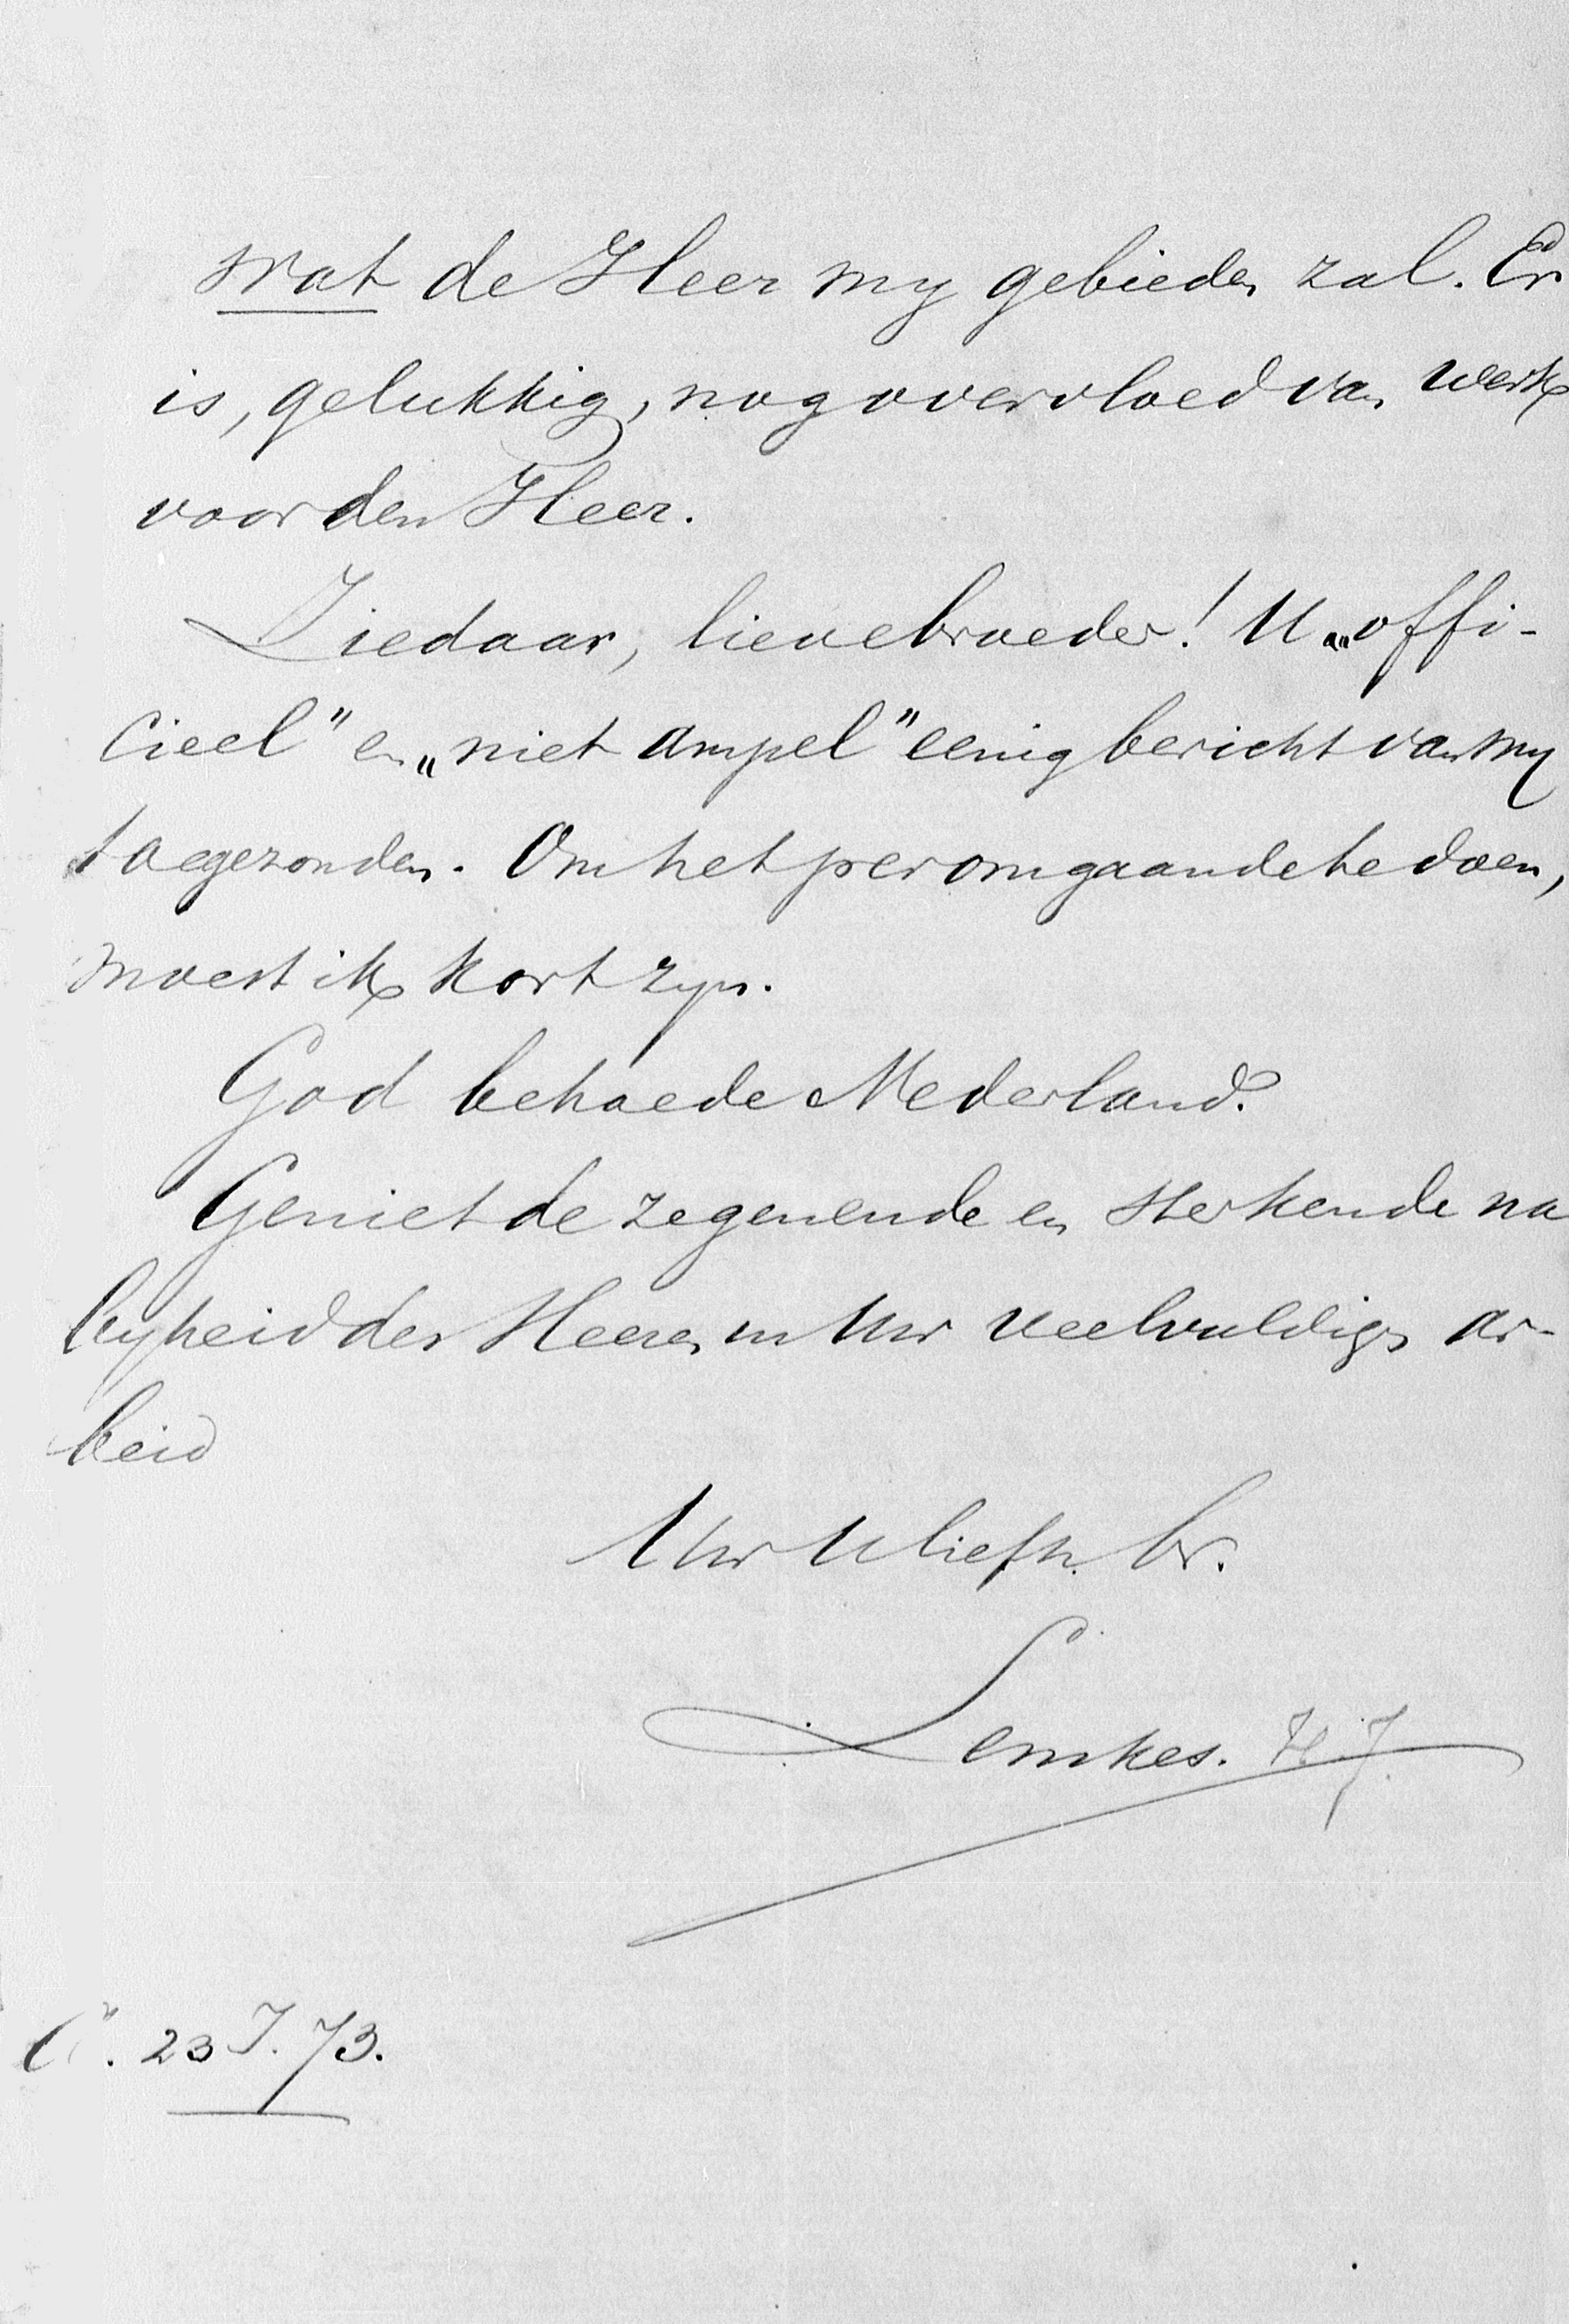 wat de Heer my gebieden zal. Er
is, gelukkig, nog overvloed van werk
voor den Heer.
Ziedaar, lieve broeder! U „offi-
cieel" en „niet ampel" eenig bericht van my
toegezonden. Om het per omgaande te doen,
moest ik kort zyn.
God behoede Nederland.
Geniet de zegenende en sterkende na
byheid des Heeren in Uw veelvuldigs ar-
beid
Uw Uliefh. br.
Lemkes. H J.
23 I. 73.